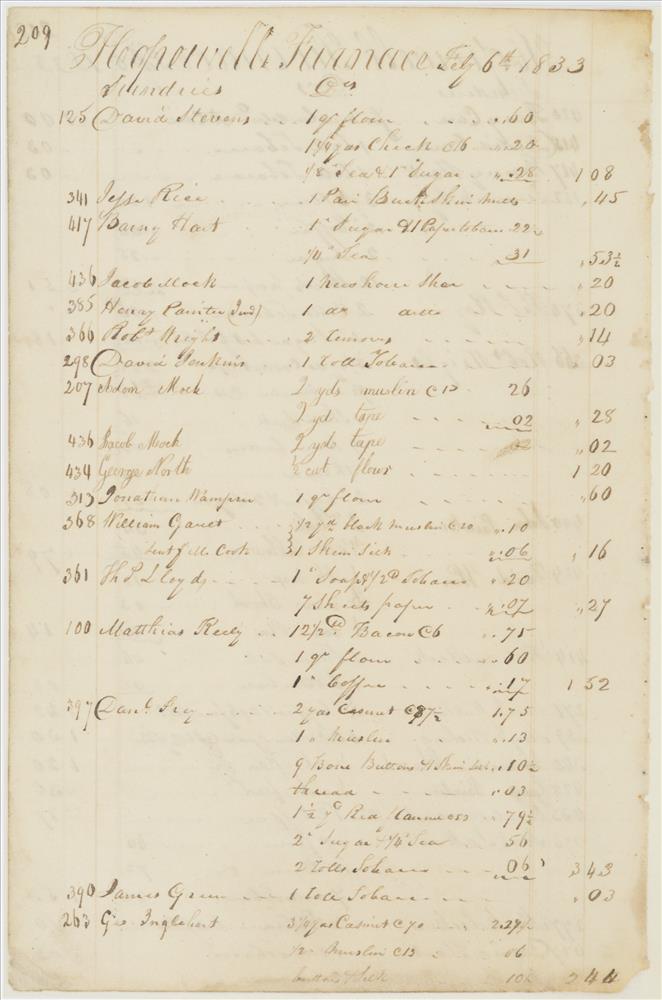 209
Hopewell Furnace Feby 6th 1833
Sundries Drs
125 David Stevens 1 qr flour .60
1 1/4 yds Check C16 .20
1/8" Tea & 1" Sugar .28 1 08
341 Jesse Rice 1 Pair Buckskin mitts .45
417 Barny Hart 1" Sugar & 1 Paper 22½
1/4" Tea 31 .53½
436 Jacob Mock 1 .20
385 Henry Painter (Ind) 1 .20
366 Robt Wright 2 lemons .14
298 David Jenkins 1 roll Tobacco 03
207 Adam Mock 2 yds muslin C13 26
2 yd tape 02 .28
436 Jacob Mock 2 yds tape 02 .02
434 George North ½ cwt flour 1 20
313 Jonathan Wamsher 1 qr flour .60
368 William Garret 1/2 yd black muslin C20 .10
Cook 1 Skein Silk .06 .16
361 Thos Lloyd 1" Soap & 1/2 D Tobacco .20
7 Sheets paper .07 .27
100 Matthias Reedy 12 1/2 D Bacon C6 .75
1 qr flour .60
1" Coffee .17 1 52
397 Danl 2 yds Casinet C87½ 1.75
1 " Muslin .13
9 Bone Buttons & 1 Skein Silk .10½
thread .03
1½ yd Red Flannel 79½
2" Sugar & 1/4" Tea 56
2 rolls Tobacco 06 3 43
390 James Green 1 roll Tobacco .03
263 Geo Inglebert 3 1/4 yds Casinet C70 2.27½
1/2 " Muslin C13 06
buttons & Silk 10½ 2 44